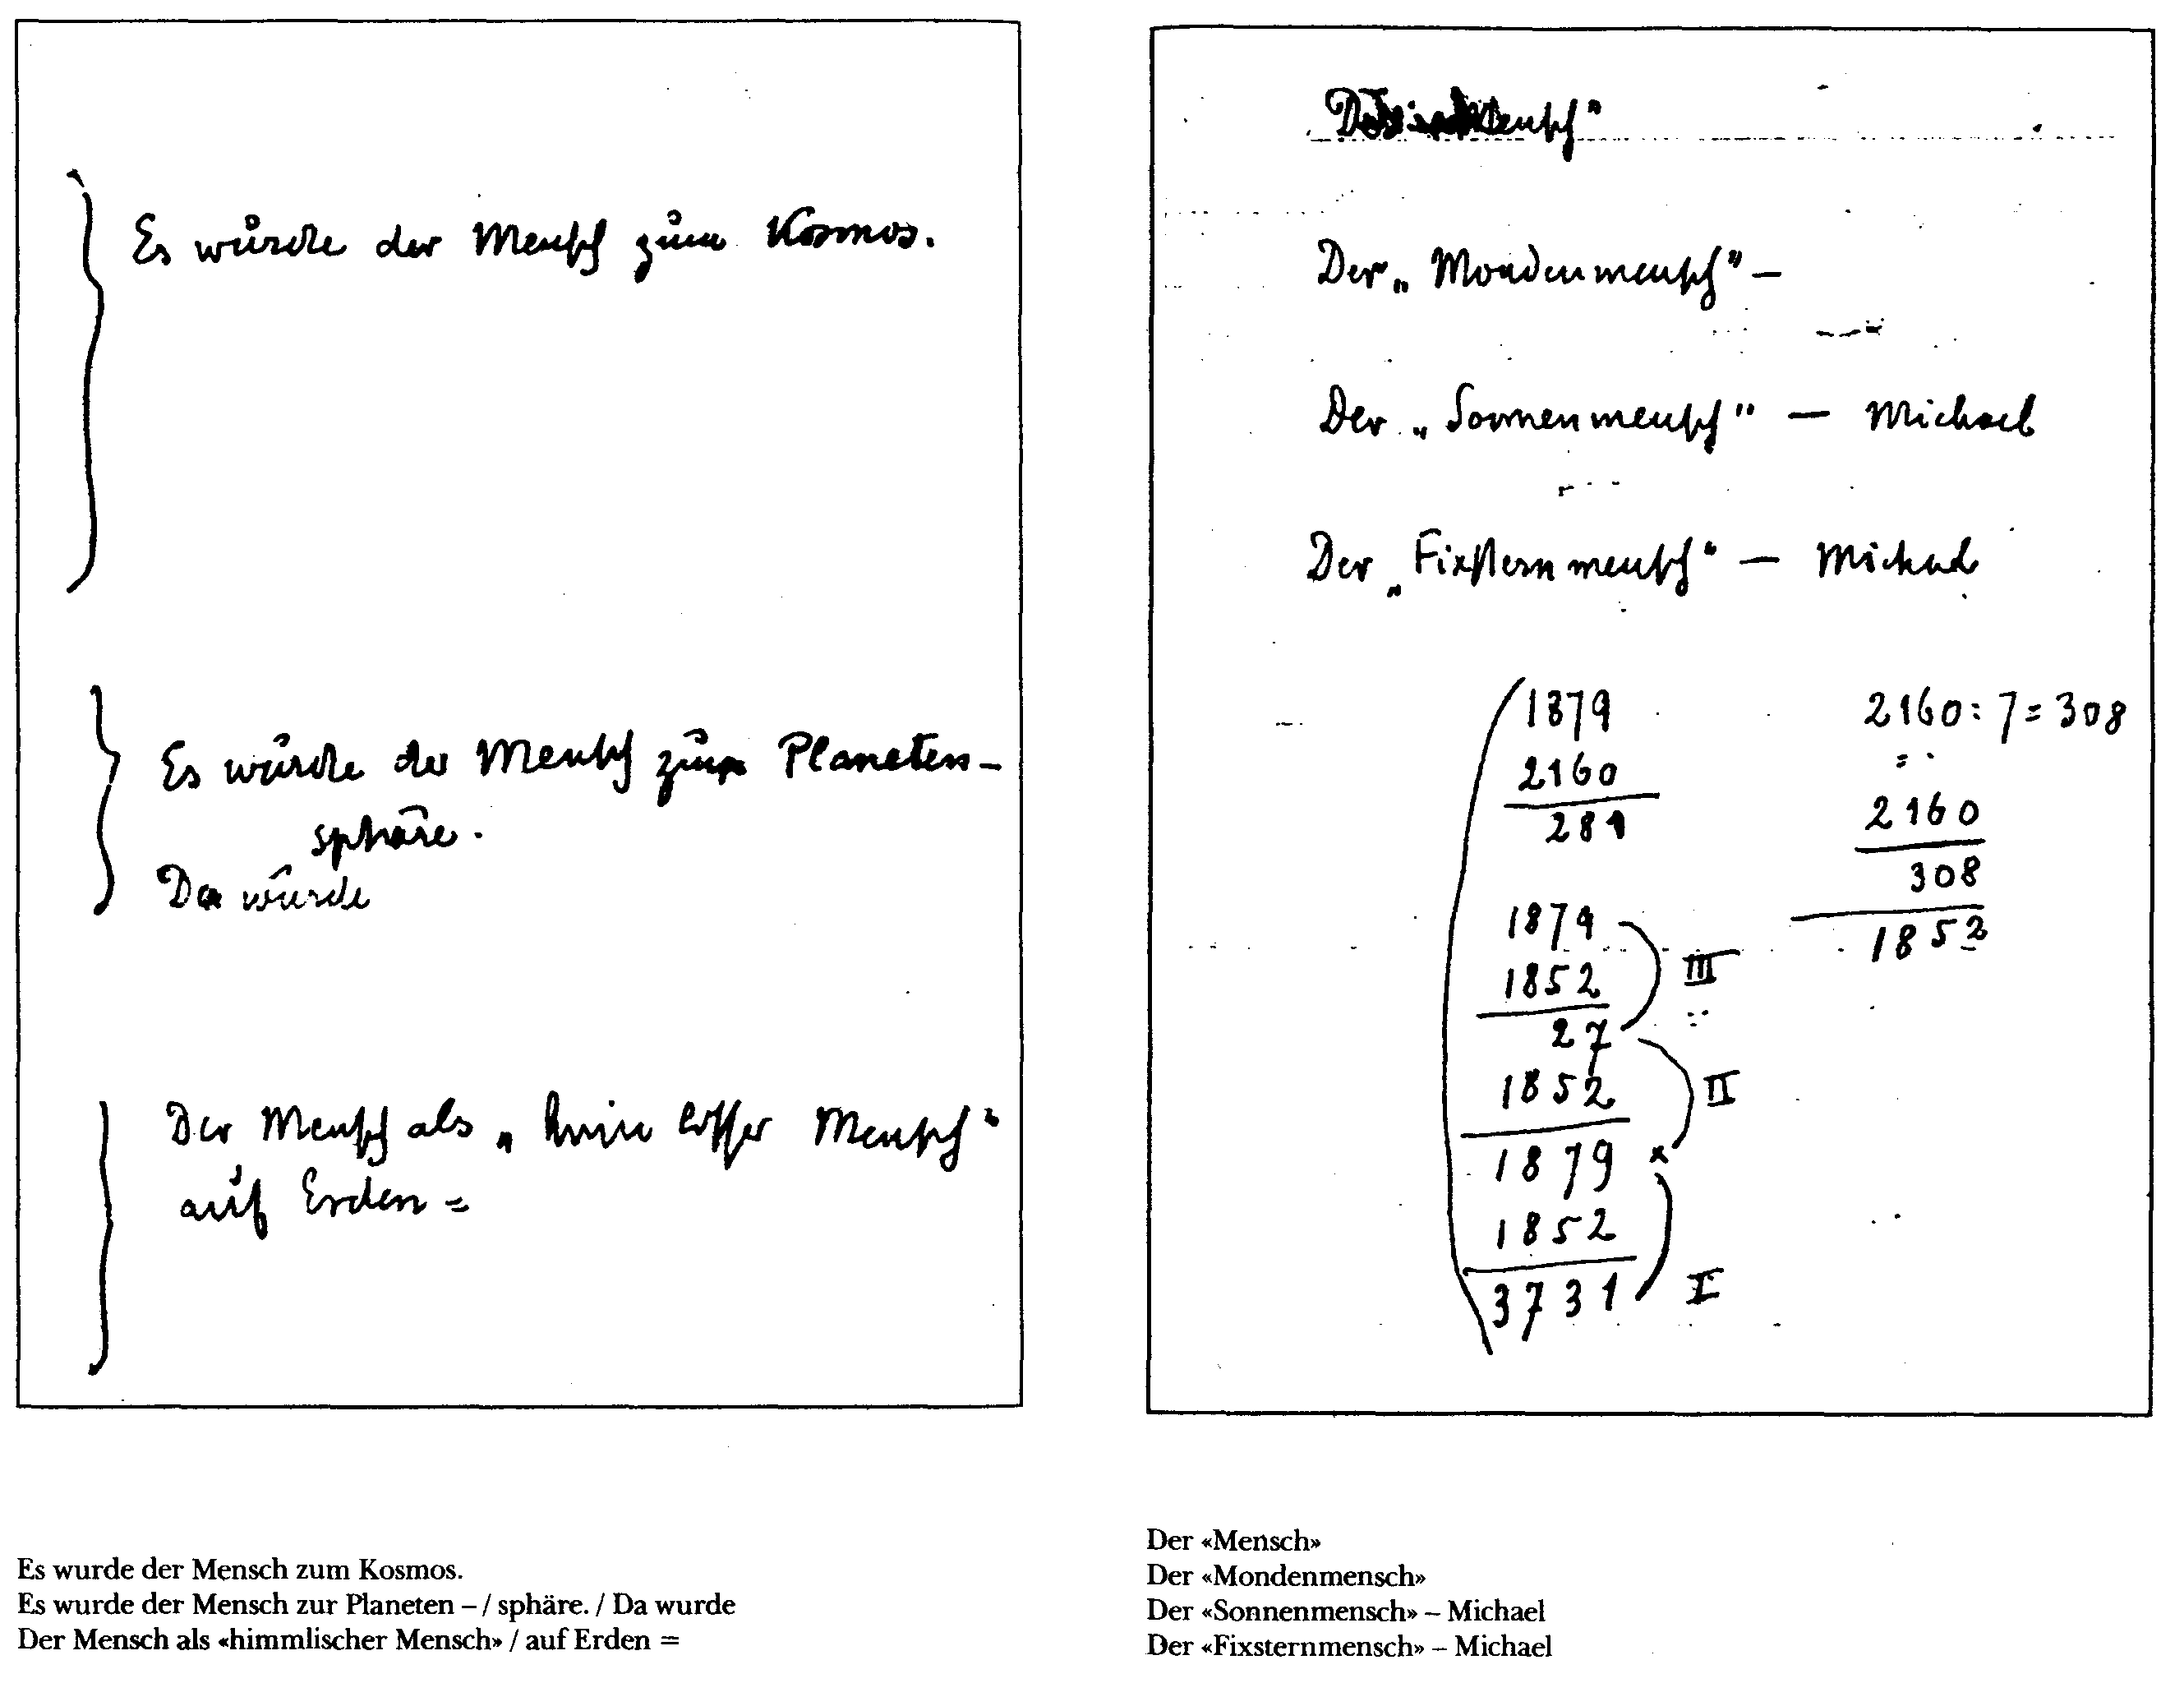 Es wurde der Mensch zum Kosmos.
Es wurde der Mensch zur Planeten-
sphäre.
Da wurde
Der Mensch als „himmlischer Mensch"
auf Erden =
Der Mensch"
Der „Mondenmensch" –
Der „Sonnenmensch" – Michael
Der „Fixsternmensch" – Michael
1879
2160
281
1879
1852
27
1852
1879 x
1852
3731
III
II
I
2160 : 7 = 308
2160
308
1852
Es wurde der Mensch zum Kosmos.
Es wurde der Mensch zur Planeten – / sphäre. / Da wurde
Der Mensch als «himmlischer Mensch» / auf Erden =
Der «Mensch»
Der «Mondenmensch»
Der «Sonnenmensch» – Michael
Der «Fixsternmensch» – Michael